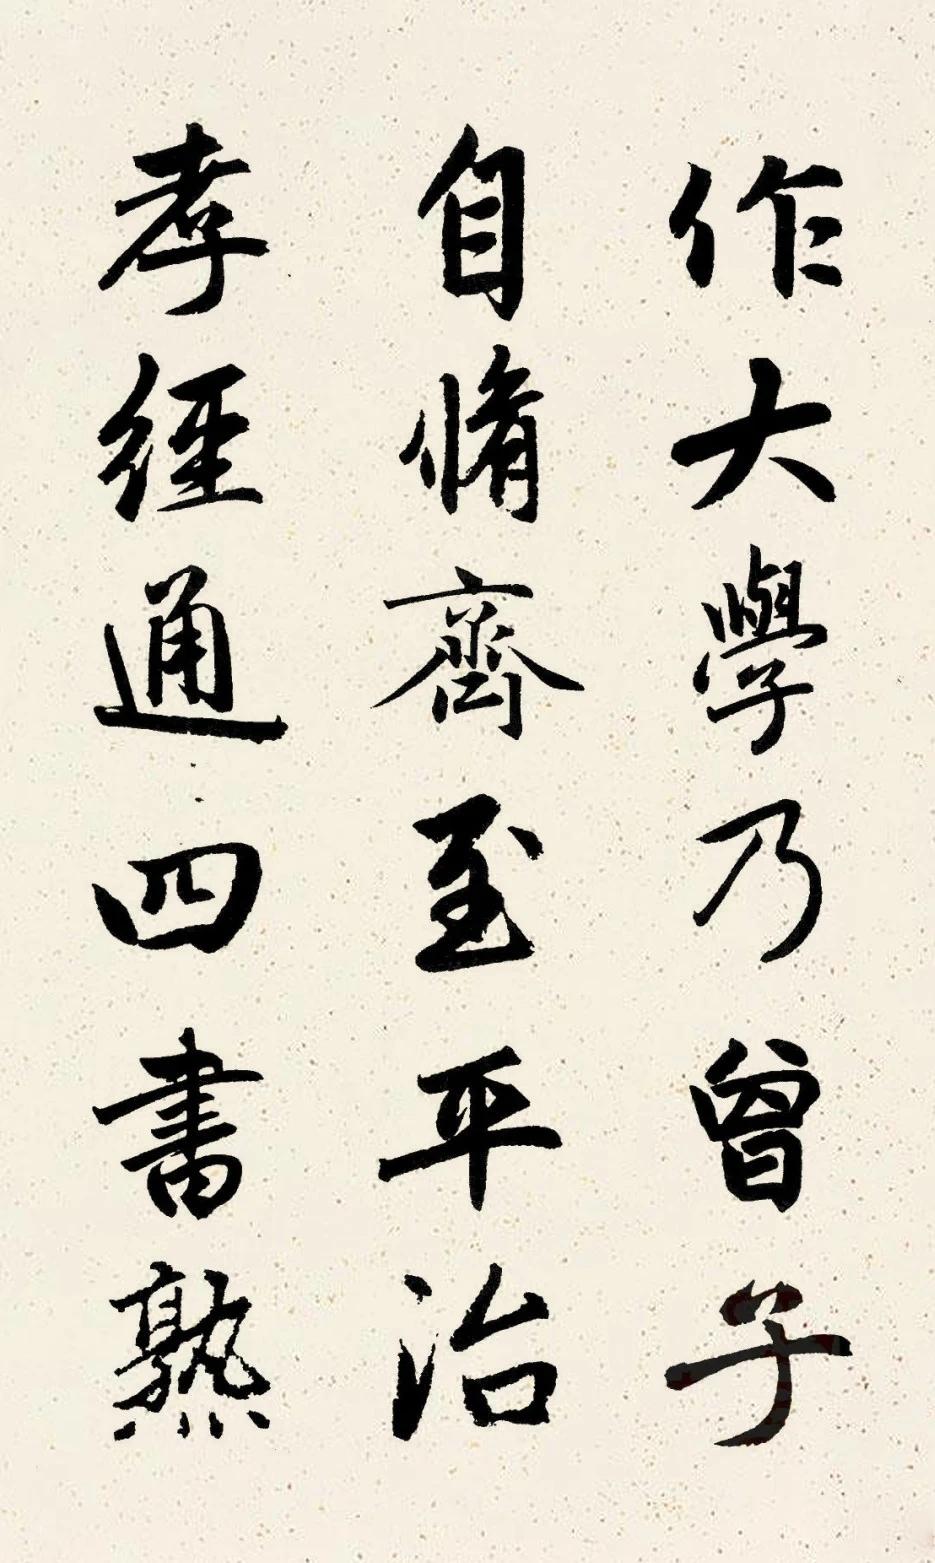 作大學乃曾子
自脩齊至平治
孝經通四書熟